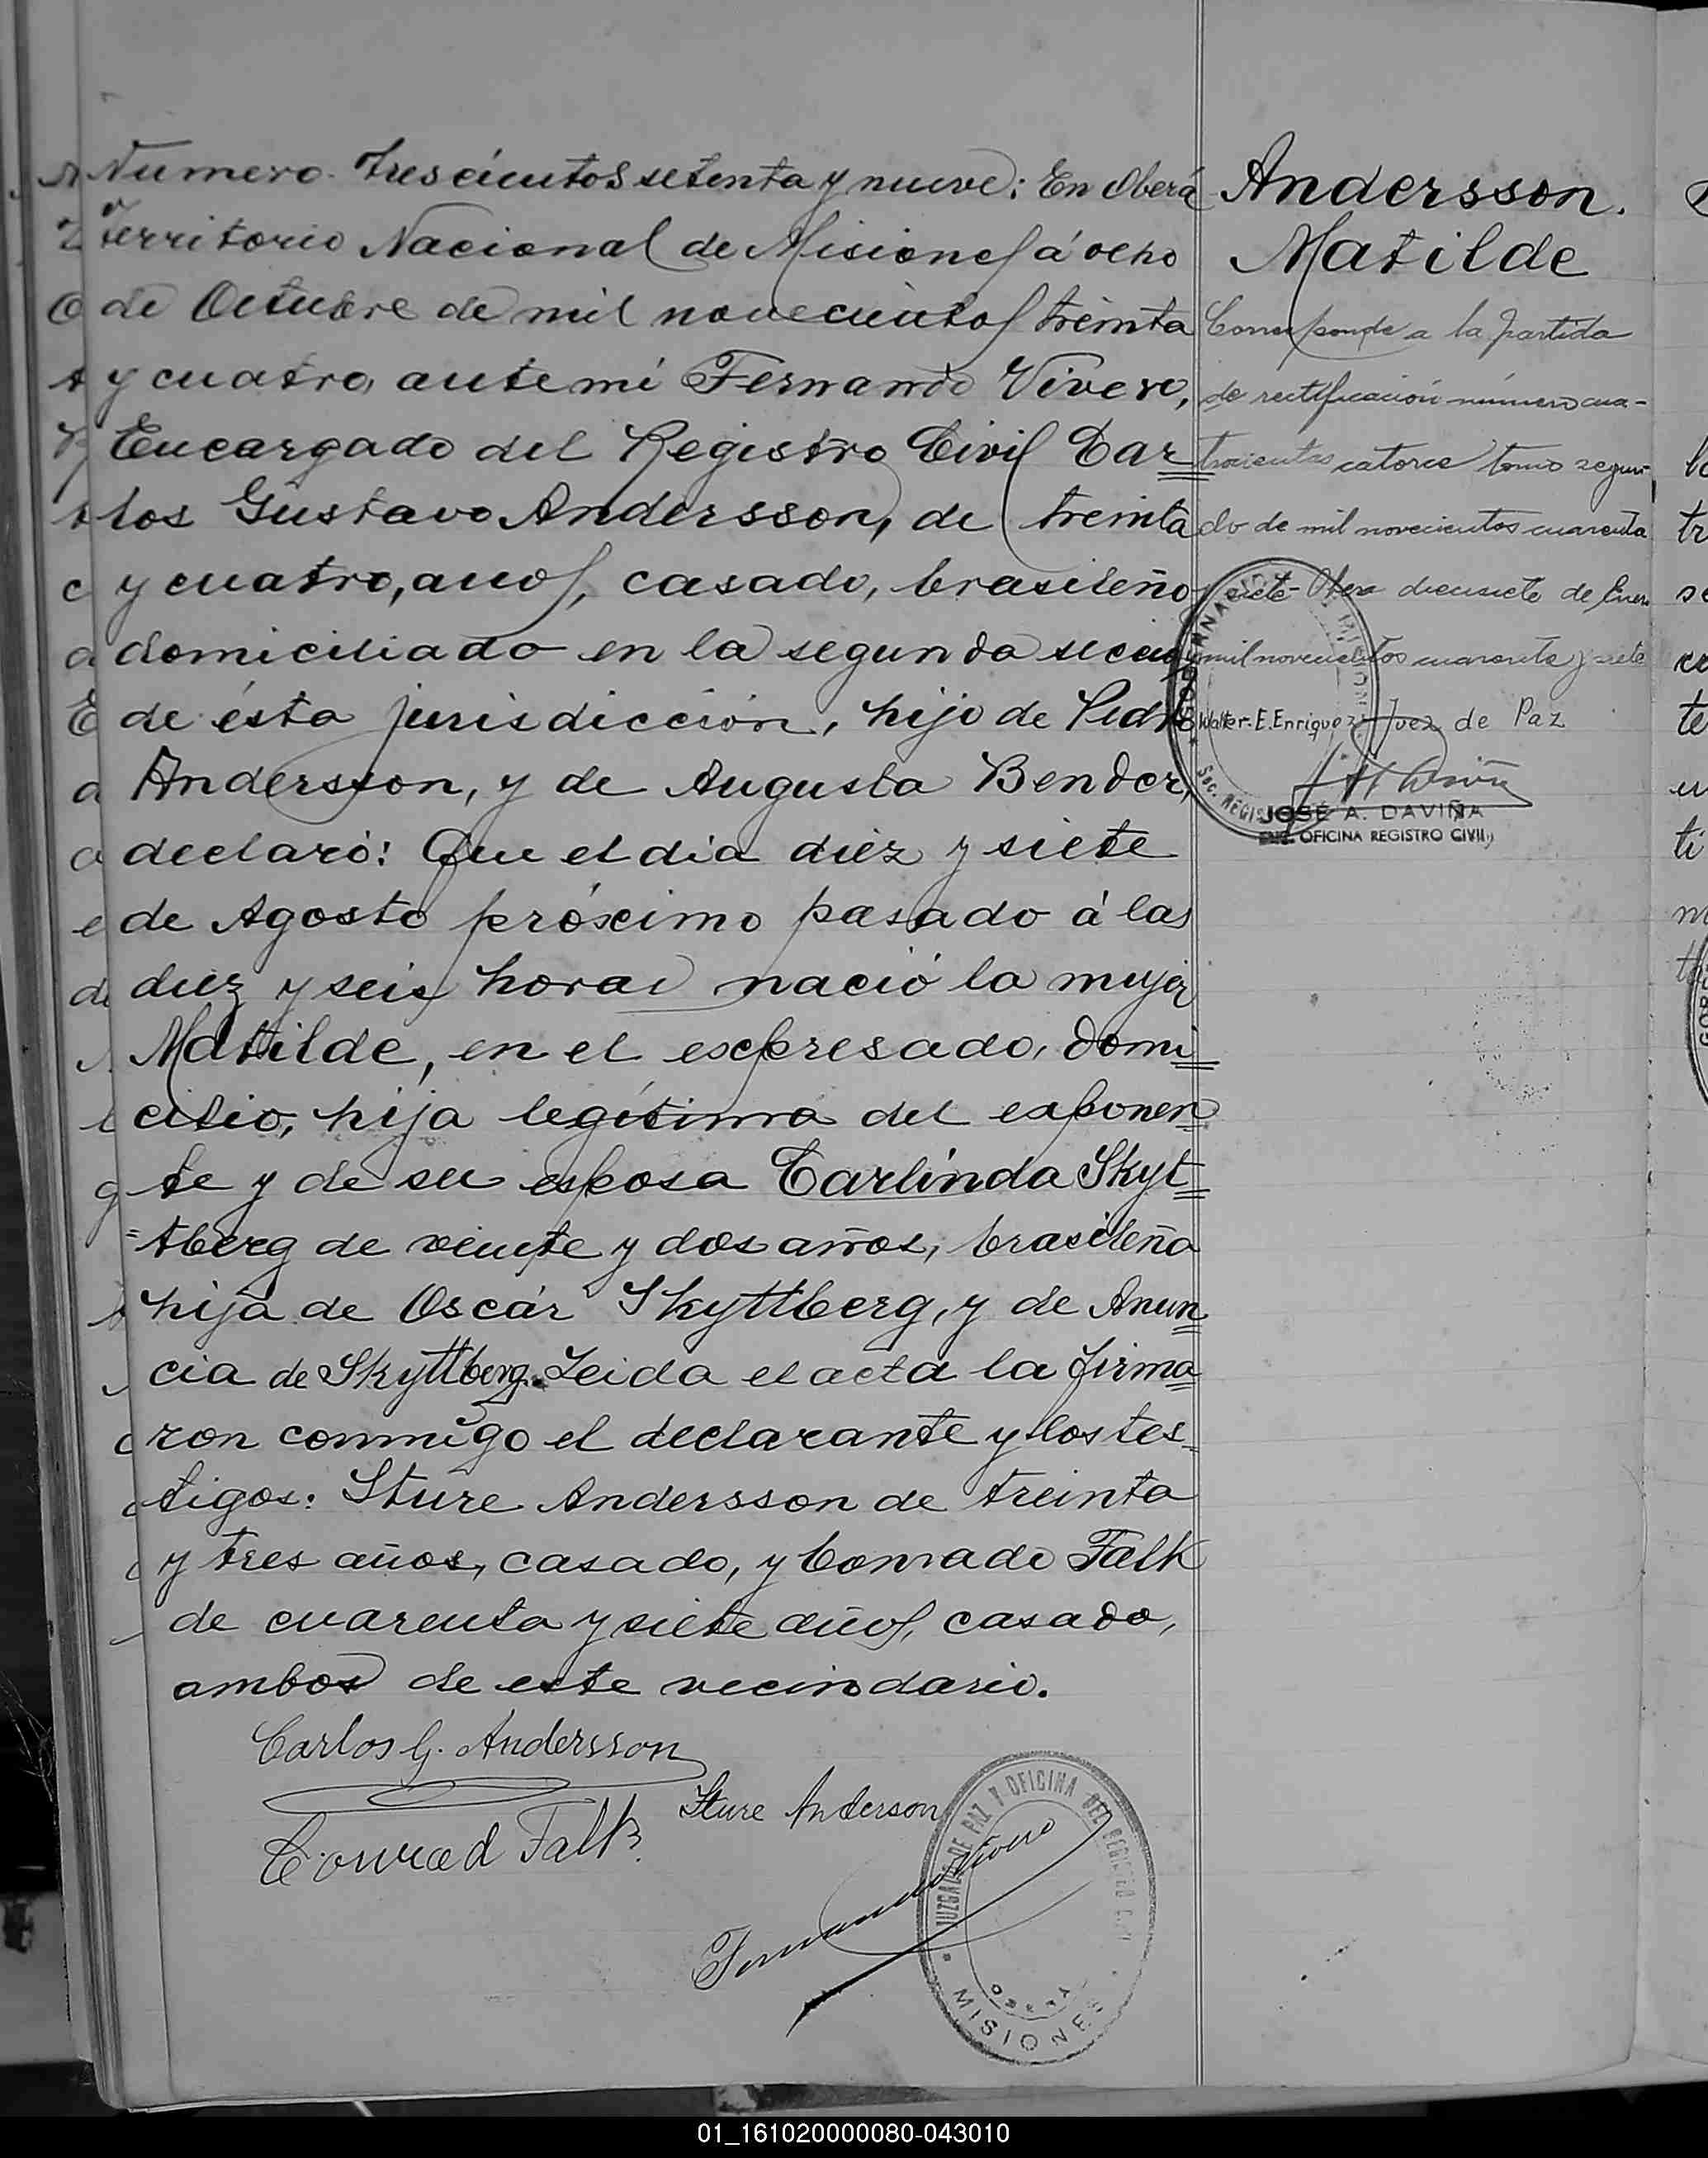 Número Trescientos setenta y nueve: En Oberá
Territorio Nacional de Misiones á ocho
de Octubre de mil novecientos treinta
y cuatro, ante mi Fernando Vivero,
Encargado del Registro Civil Car=
los Gustavo Andersson, de treinta
y cuatro, años, casado, brasileño
domiciliado en la segunda sección
de ésta jurisdicción, hijo de Pedro
Andersson, y de Augusta Bender,
declaró: Que el dia diez y siete
de Agosto próximo pasado á las
diez y seis horas nació la mujer
Matilde, en el expresado, domi=
cilio, hija legítima del exponen=
te y de su esposa Carlinda Skyt=
=tberg de veinte y dos años, brasileña
hija de Oscár Skyttberg, y de Anun=
cia de Skyttberg. Leida el acta la firma=
ron conmigo el declarante y los tes=
tigos: Sture Andersson de treinta
y tres años, casado, y Conrado Falk
de cuarenta y siete años, casado,
ambos de este vecindario.
Carlos G. Andersson
Sture Anderson
Conrad Falk
Fernando Vivero
JUZGADO DE PAZ Y OFICINA DEL REGISTRO CIVIL
OBERÁ
MISIONES
Andersson.
Matilde
Corresponde a la partida
de rectificación número cua-
trocientos catorce tomo segun-
do de mil novecientos cuarenta
y siete - Obera diecisiete de Enero
mil novecientos cuarenta y siete
Walter. E. Enriquez - Juez de Paz
JOSÉ A. DAVIÑA
ENC. OFICINA REGISTRO CIVIL
01_161020000080-043010